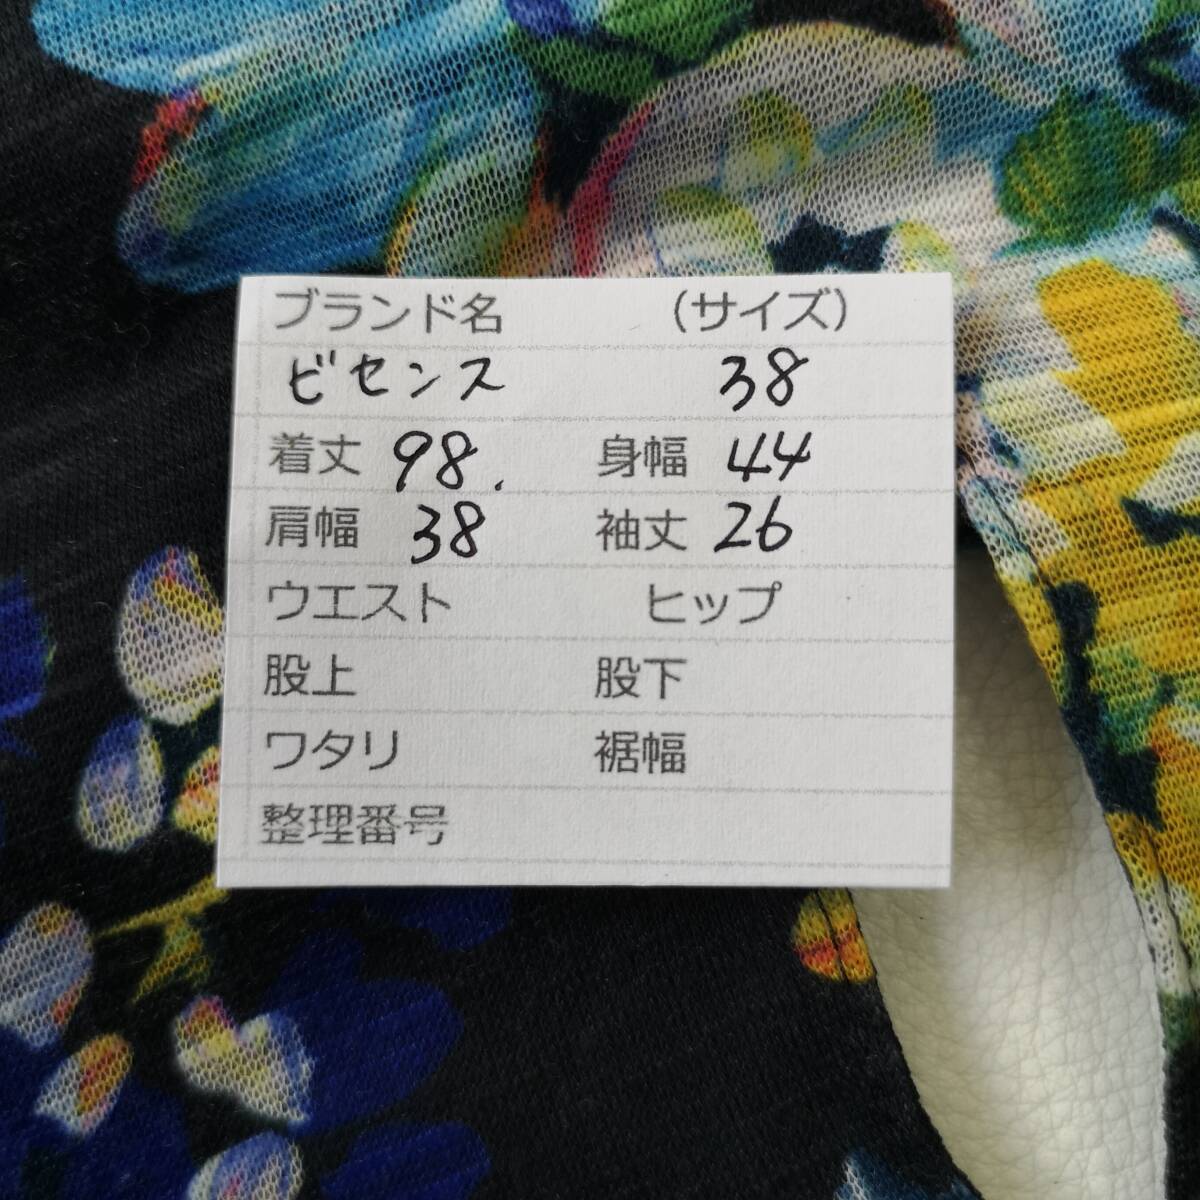 ブランド名 （サイズ）
ビセンス 38
着丈 98. 身幅 44
肩幅 38 袖丈 26
ウエスト ヒップ
股上 股下
ワタリ 裾幅
整理番号